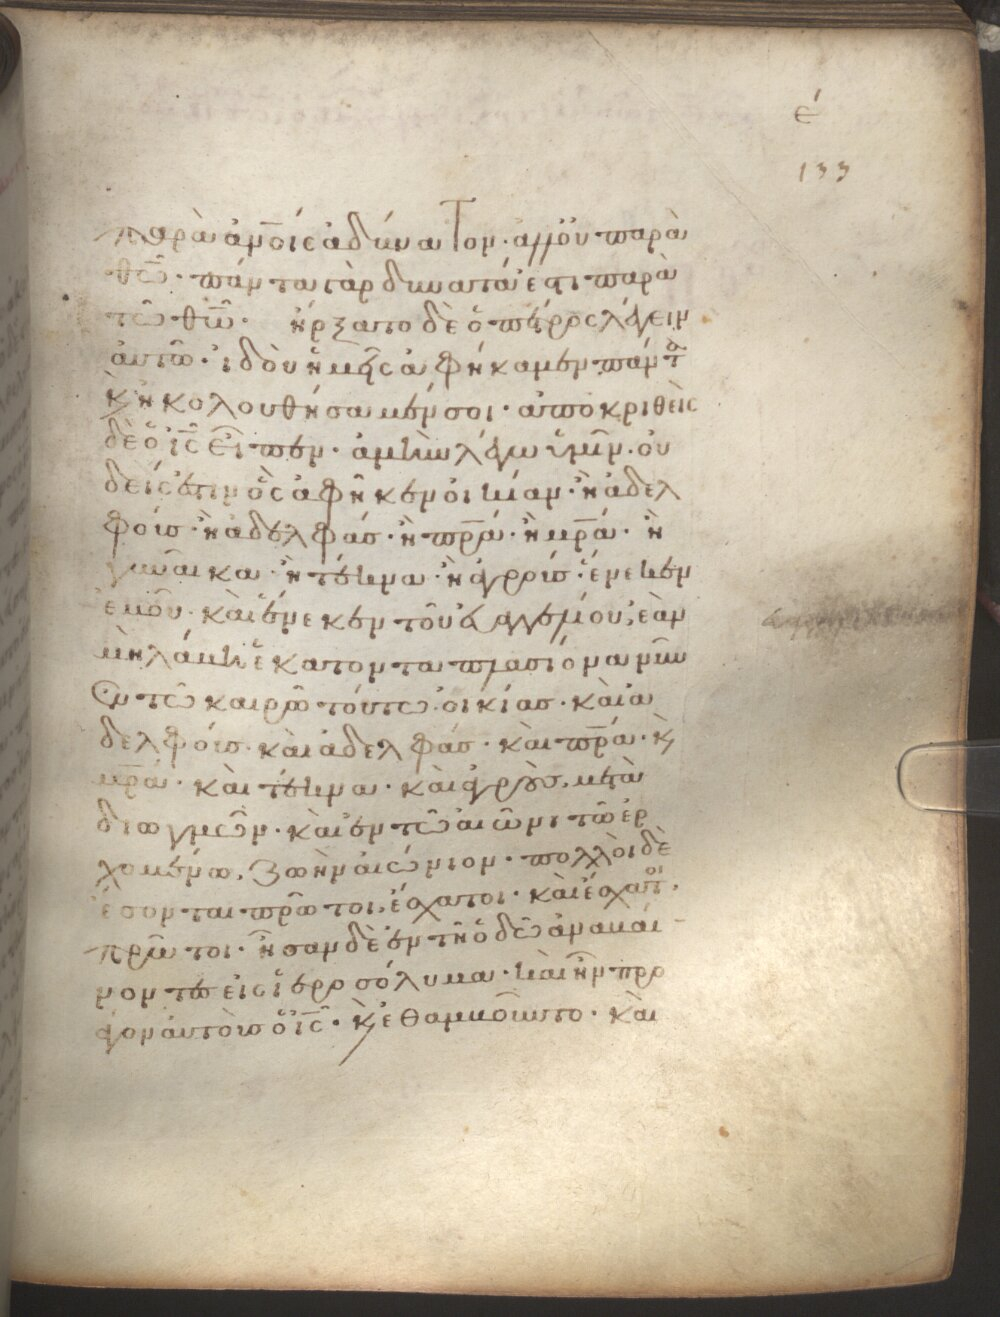 έ
133
παρὰ ἀν̅οις ἀδύνατον· ἀλλ' οὐ παρὰ
θῶ̅· πάντα γὰρ δυνατά ἐστι παρὰ
τῶ θῶ̅· ἤρξατο δὲ ὁ πέτρος λέγειν
αὐτῶ· ἰδοὺ ἡμεῖς ἀφήκαμεν πάντα
κ ἠκολουθήσαμέν σοι· ἀποκριθεὶς
δὲ ὁ ις̅ εἶπεν· ἀμὴν λέγω ὑμῖν· οὐ
δείς ἐστιν ὃς ἀφῆκεν οἰκίαν· ἢ ἀδελ
φοὺς· ἢ ἀδελφάς· ἢ πρ̅α· ἢ μρ̅α· ἢ
γυναῖκα· ἢ τέκνα· ἢ ἀγροὺς· ἕνεκεν
ἐμοῦ· καὶ ἕνεκεν τοῦ εὐαγγελίου, ἐὰν
μὴ λάβη ἑκατονταπλασίονα νῦν
ἐν τῶ καιρῶ τούτω· οἰκίας· καὶ ἀ
δελφούς· καὶ ἀδελφάς· καὶ πρ̅α· κ
μρ̅α· καὶ τέκνα· καὶ ἀγροὺς, μετὰ
διωγμῶν· καὶ ἐν τῶ αἰῶνι τῶ ἐρ
χομένω, ζωὴν αἰώνιον· πολλοὶ δὲ
ἔσονται πρῶτοι, ἔσχατοι· καὶ ἔσχατοι,
πρῶτοι· ἦσαν δὲ ἐν τῆ ὁδῶ ἀναβαί
νοντες εἰς ἱεροσόλυμα· καὶ ἦν προ
άγων αὐτοὺς ὁ ις̅· κ ἐθαμβοῦντο· καὶ